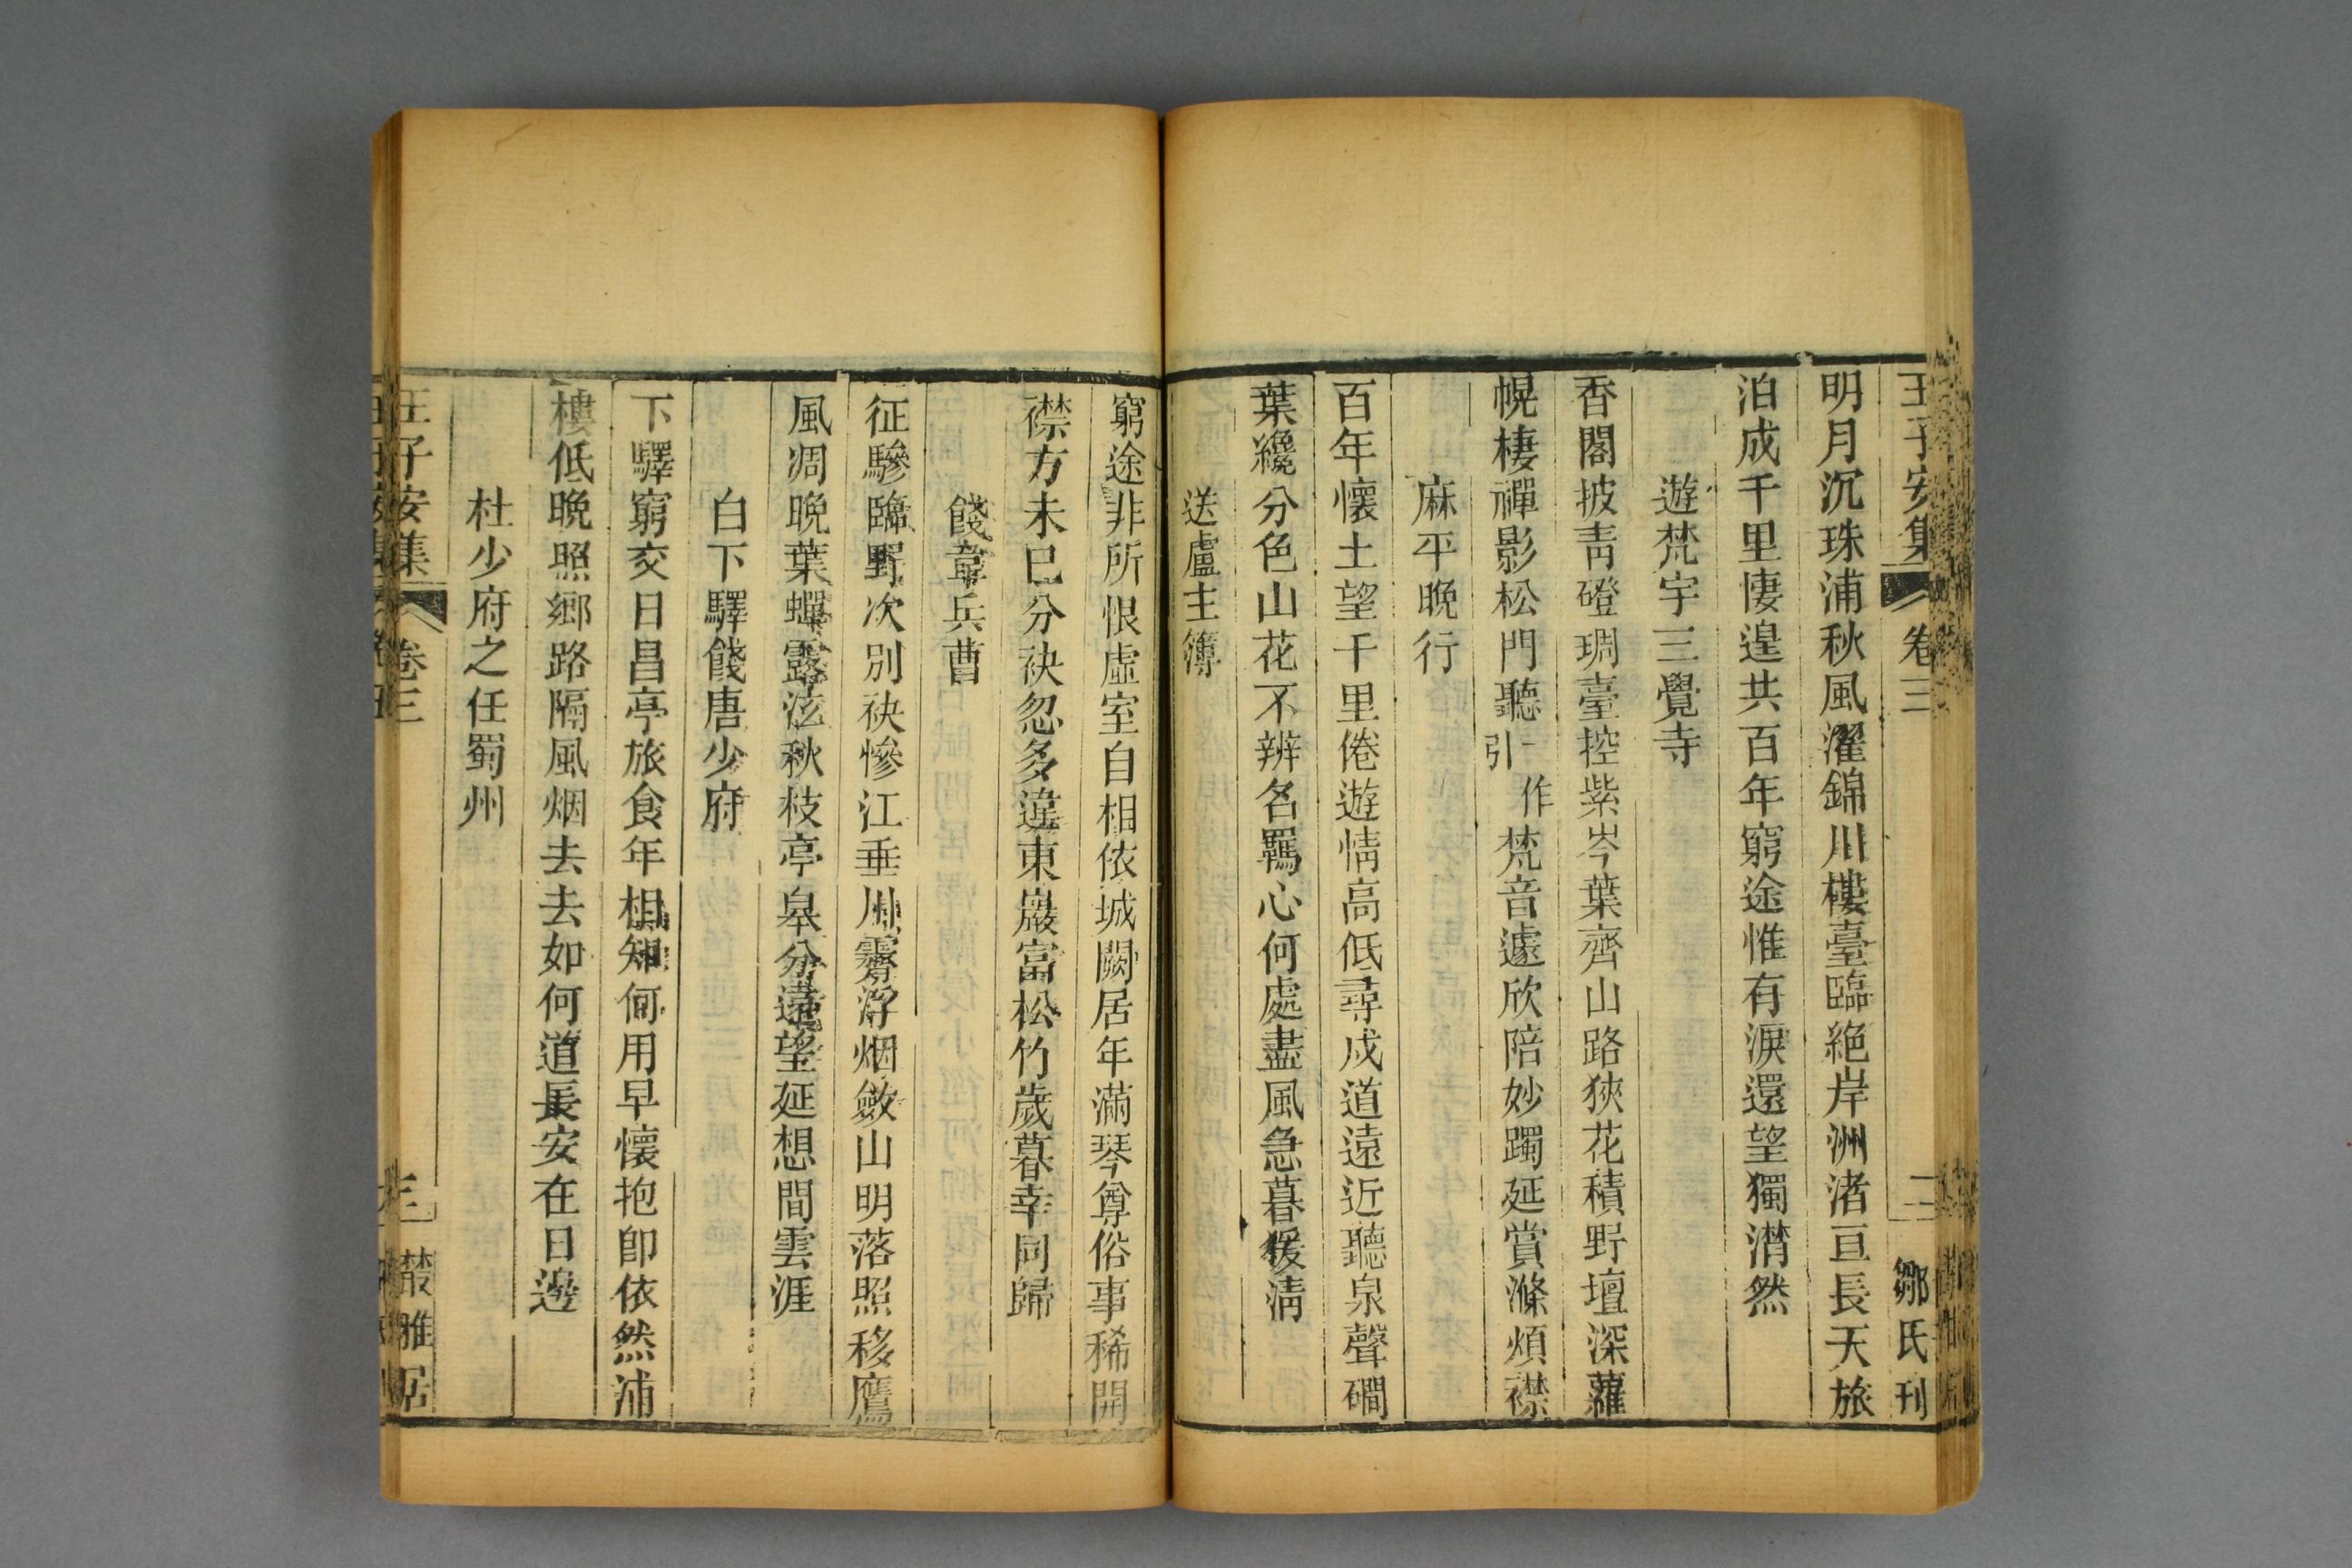 王子安集 卷三 二 鄒氏刊
明月沉珠浦秋風濯錦川樓臺臨絶岸洲渚亘長天旅
泊成千里悽遑共百年窮途惟有淚還望獨潸然
遊梵宇三覺寺
香閣披青磴琱臺控紫岑葉齊山路狹花積野壇深蘿
幌棲禪影松門聽一作引梵音遽欣陪妙躅延賞滌煩襟
麻平晚行
百年懷土望千里倦遊情高低尋戍道遠近聽泉聲磵
葉纔分色山花不辨名羈心何處盡風急暮猨清
送盧主簿
窮途非所恨虛室自相依城闕居年滿琴尊俗事稀開
襟方未巳分袂忽多違東巖富松竹歲暮幸同歸
餞韋兵曹
征驂臨野次別袂慘江垂川霽浮烟斂山明落照移鷹
風凋晚葉蟬露泫秋枝亭皋分遠望延想間雲涯
白下驛餞唐少府
下驛窮交日昌亭旅食年相知何用早懷抱卽依然浦
樓低晚照鄉路隔風烟去去如何道長安在日邊
杜少府之任蜀州
王子安集 卷三 三 叢雅居